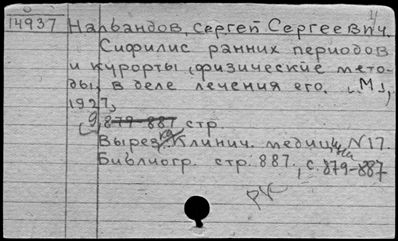 14937 Налбандов, Сергей Сергеевич.
Сифилис ранних периодов
и курорты, физические мето-
ды, в деле лечения его. [М],
1927,
9, 879-887 стр.
Вырезка. Клинич. медиц., N17.
Библиогр. стр. 887., с. 879-887